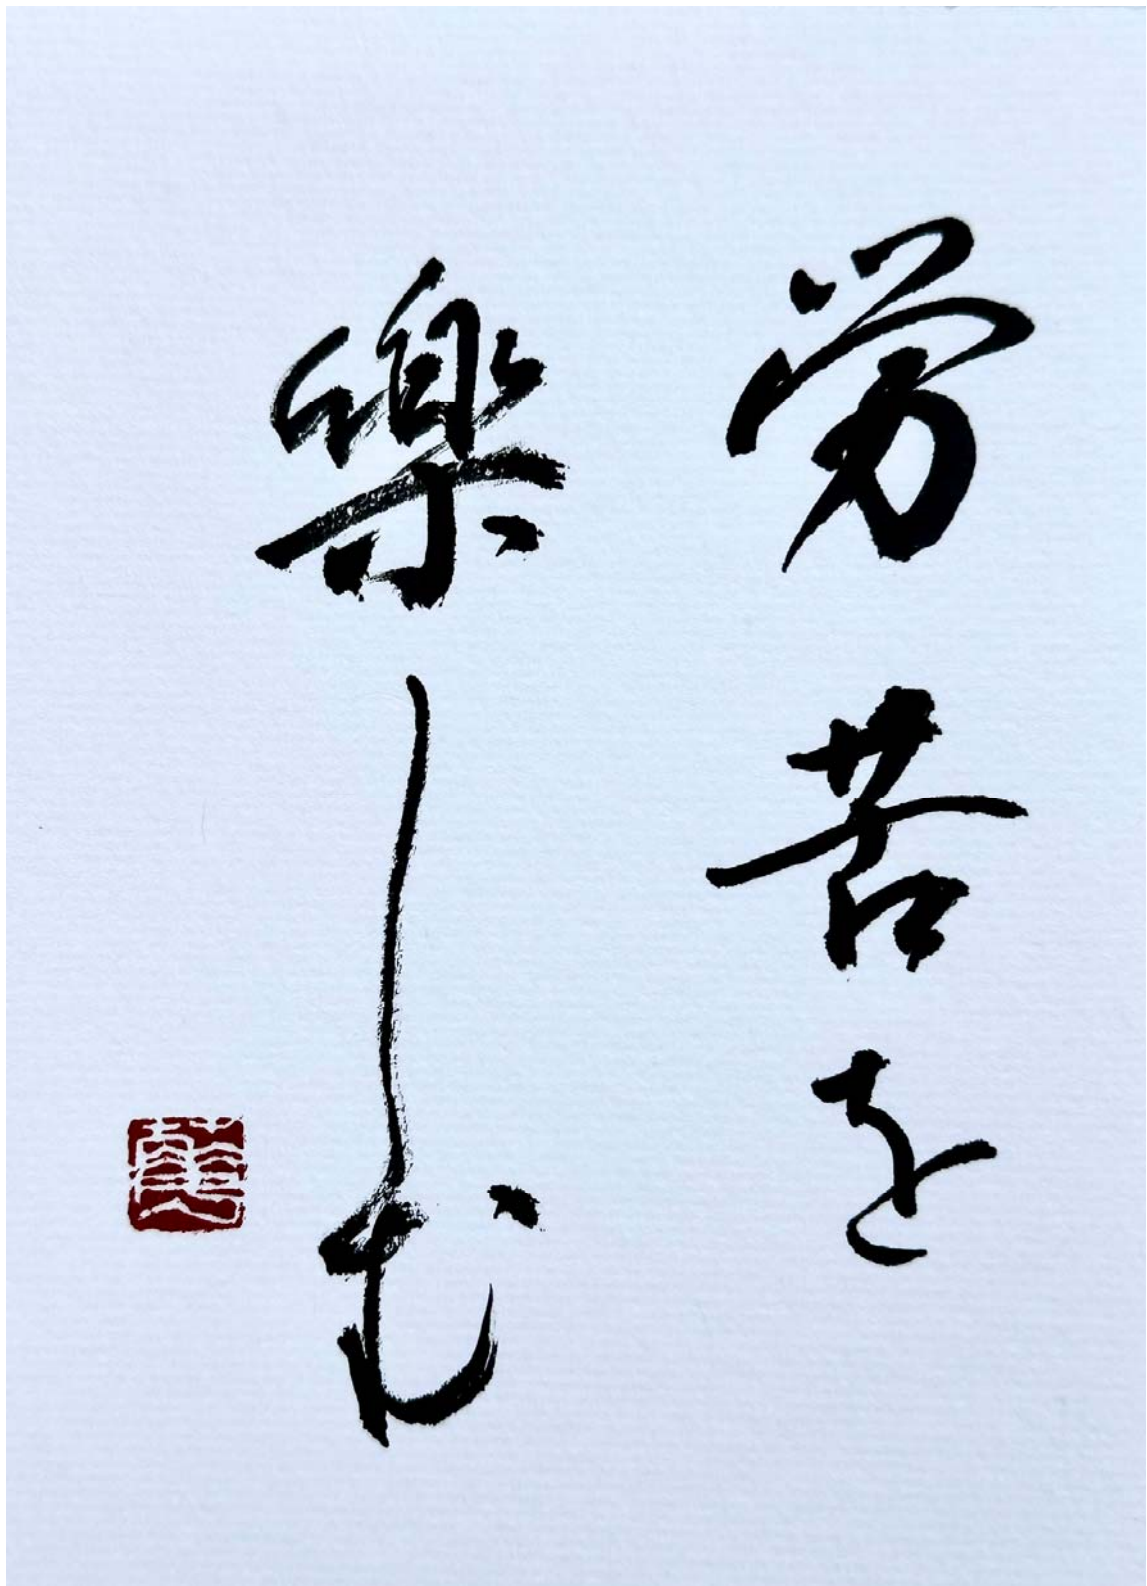 労苦を
樂しむ